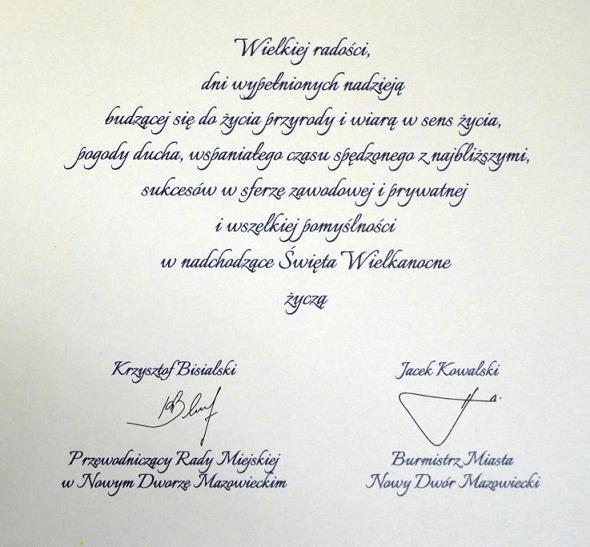 Wielkiej radości,
dni wypełnionych nadzieją
budzącej się do życia przyrody i wiarą w sens życia,
pogody ducha, wspaniałego czasu spędzonego z najbliższymi,
sukcesów w sferze zawodowej i prywatnej
i wszelkiej pomyślności
w nadchodzące Święta Wielkanocne
życzą
Krzysztof Bisialski
Jacek Kowalski
Przewodniczący Rady Miejskiej
w Nowym Dworze Mazowieckim
Burmistrz Miasta
Nowy Dwór Mazowiecki